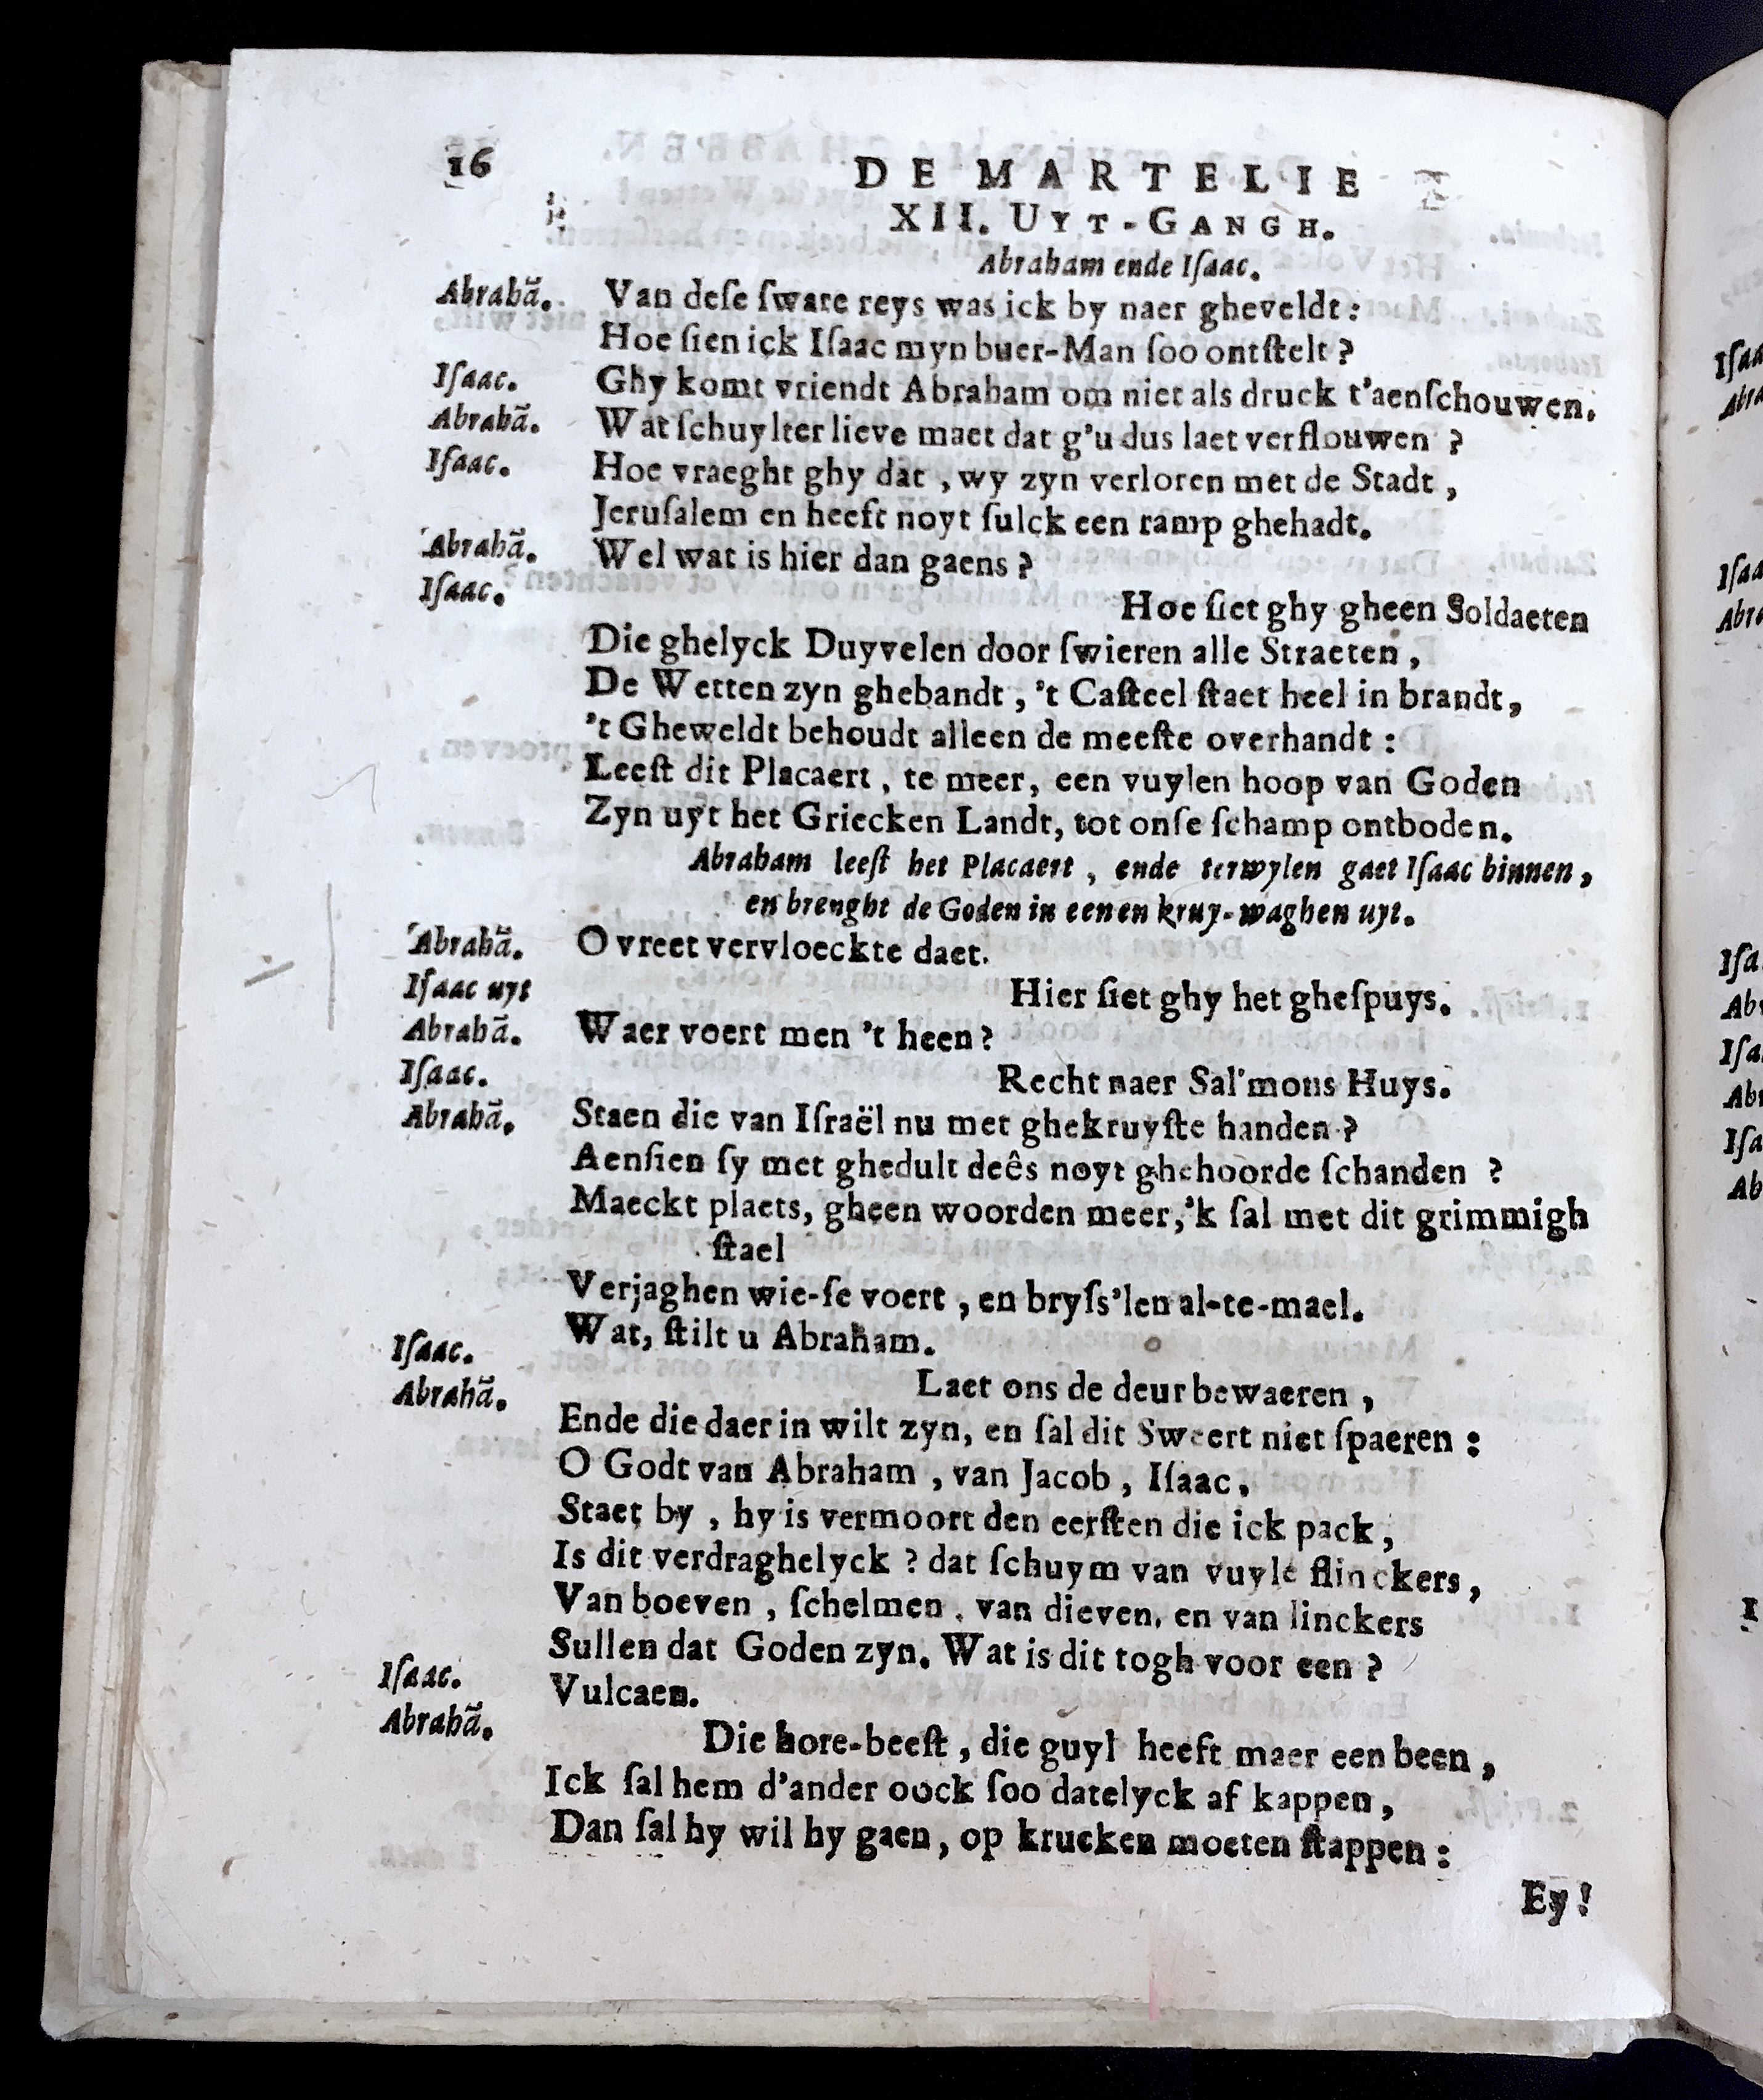 16 DE MARTELIE
XII. UYT-GANGH.
Abraham ende Iſaac.
Abrahā. Van deſe ſware reys was ick by naer gheveldt:
Hoe ſien ick Iſaac myn buer-Man ſoo ontſtelt?
Iſaac. Ghy komt vriendt Abraham om niet als druck t'aenſchouwen.
Abrahā. Wat ſchuylter lieve maet dat g'u dus laet verflouwen?
Iſaac. Hoe vraeght ghy dat, wy zyn verloren met de Stadt,
Jeruſalem en heeft noyt ſulck een ramp ghehadt.
Abrahā. Wel wat is hier dan gaens?
Iſaac. Hoe ſiet ghy gheen Soldaeten
Die ghelyck Duyvelen door ſwieren alle Straeten,
De Wetten zyn ghebandt, 't Caſteel ſtaet heel in brandt,
't Gheweldt behoudt alleen de meeſte overhandt:
Leeſt dit Placaert, te meer, een vuylen hoop van Goden
Zyn uyt het Griecken Landt, tot onſe ſchamp ontboden.
Abraham leeſt het Placaert, ende terwylen gaet Iſaac binnen,
en brenght de Goden in eenen kruy-waghen uyt.
Abrahā. O vreet vervloeckte daet.
Iſaac uyt Hier ſiet ghy het gheſpuys.
Abrahā. Waer voert men 't heen?
Iſaac. Recht naer Sal'mons Huys.
Abrahā. Staen die van Iſraël nu met ghekruyſte handen?
Aenſien ſy met ghedult deês noyt ghehoorde ſchanden?
Maeckt plaets, gheen woorden meer, 'k ſal met dit grimmigh
ſtael
Verjaghen wie-ſe voert, en bryſs'len al-te-mael.
Iſaac. Wat, ſtilt u Abraham.
Abrahā. Laet ons de deur bewaeren,
Ende die daer in wilt zyn, en ſal dit Sweert niet ſpaeren:
O Godt van Abraham, van Jacob, Iſaac,
Staet by, hy is vermoort den eerſten die ick pack,
Is dit verdraghelyck? dat ſchuym van vuyle flinckers,
Van boeven, ſchelmen, van dieven, en van linckers
Sullen dat Goden zyn. Wat is dit togh voor een?
Iſaac. Vulcaen.
Abrahā. Die hore-beeſt, die guyl heeft maer een been,
Ick ſal hem d'ander oock ſoo datelyck af kappen,
Dan ſal hy wil hy gaen, op krucken moeten ſtappen:
Ey!